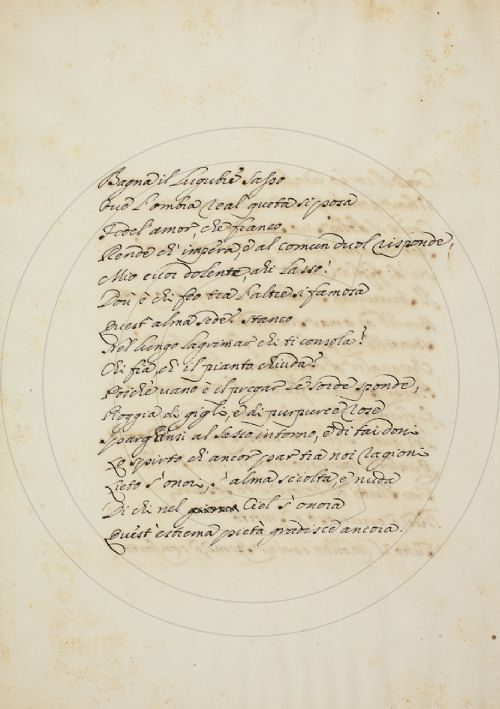 Bagna il lugubre Sasso
Ove l'ombra real queta si posa
Fedel amor, che fianco
Rende chi impera, e al comun duol risponde,
Mio cuor dolente, ahi lasso!
Dov' è chi feo tra l'altre sì famosa
Quest' alma sede? Stanco
Nel lungo lagrimar chi ti consola?
Chi fia, ch' il pianto chiuda?
Poichè vano è il pregar le sorde sponde,
Pioggia di gigli, e di purpuree rose
Spargansi al Sasso intorno, e di tai doni
Lo spirto ch' ancor par tra noi ragioni
Lieto s' onori, s' alma sciolta, e nuda
Di chi nel Ciel s' onora
Quest' estrema pietà gradisce ancora.